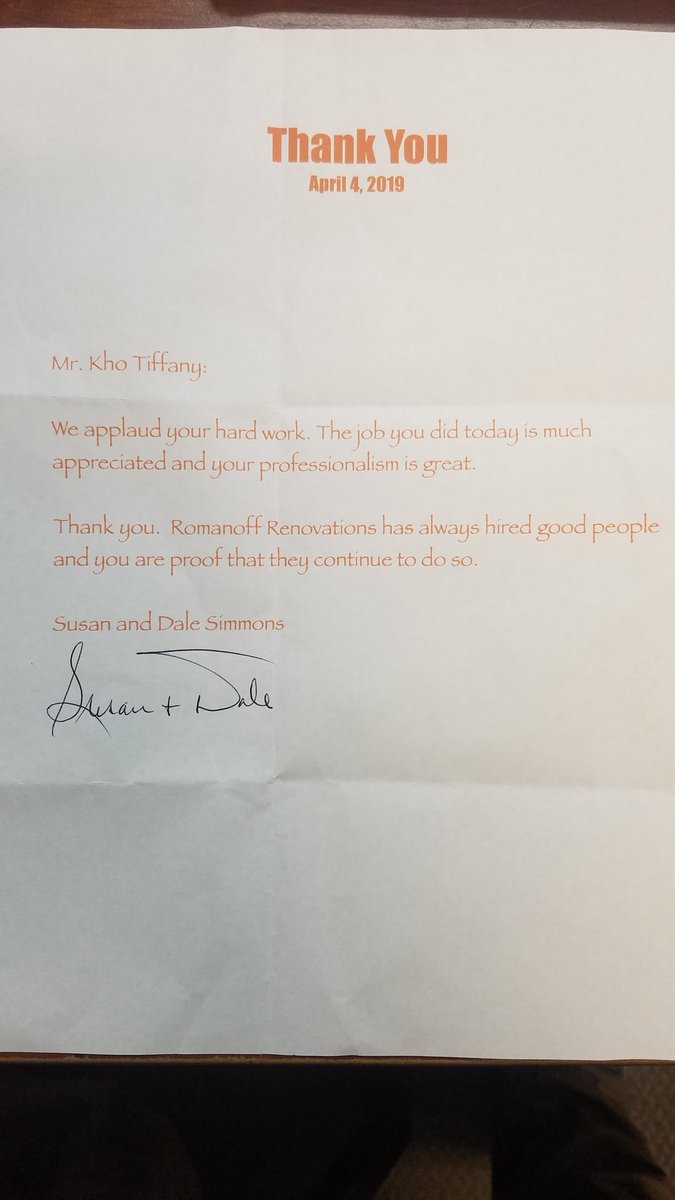 Thank You
April 4, 2019
Mr. Kho Tiffany:
We applaud your hard work. The job you did today is much
appreciated and your professionalism is great.
Thank you. Romanoff Renovations has always hired good people
and you are proof that they continue to do so.
Susan and Dale Simmons
Susan + Dale